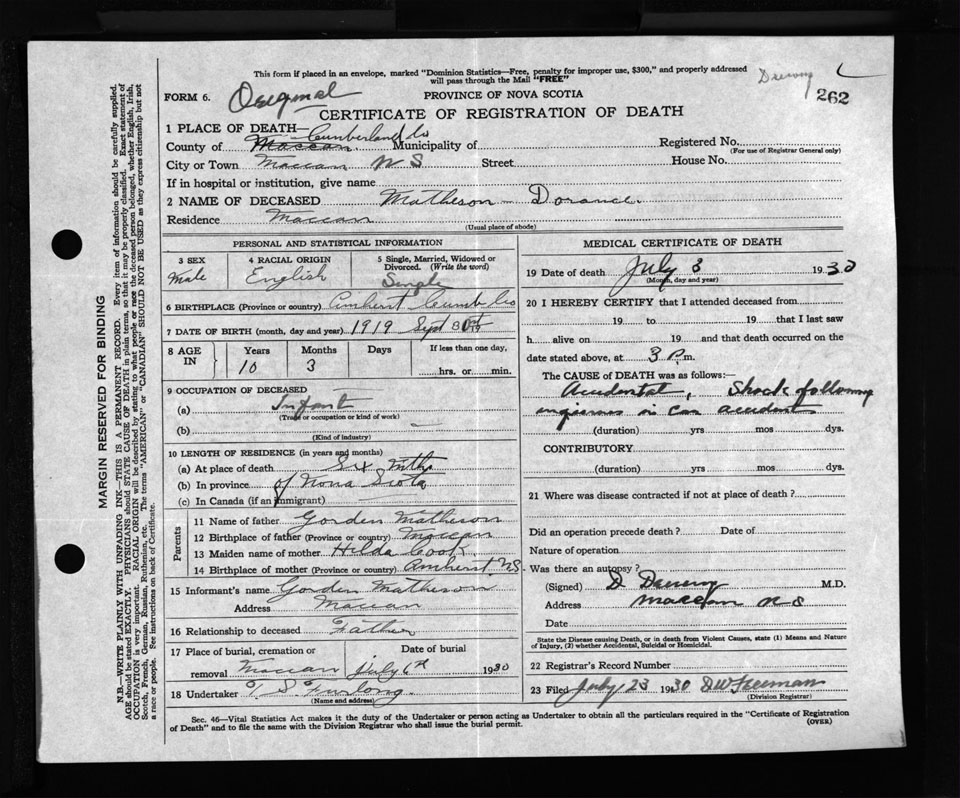 This form if placed in an envelope, marked "Dominion Statistics—Free, penalty for improper use, $300," and properly addressed
will pass through the Mail "FREE"
FORM 6. Original PROVINCE OF NOVA SCOTIA
262
CERTIFICATE OF REGISTRATION OF DEATH
1 PLACE OF DEATH— Cumberland Co
County of Maccan Municipality of Registered No.
(For use of Registrar General only)
City or Town Maccan N S Street House No.
If in hospital or institution, give name
2 NAME OF DECEASED Matheson — Dorance
Residence Maccan
(Usual place of abode)
PERSONAL AND STATISTICAL INFORMATION
3 SEX 4 RACIAL ORIGIN 5 Single, Married, Widowed or
Divorced. (Write the word)
Male English Single
6 BIRTHPLACE (Province or country) Amherst Cumb Co
7 DATE OF BIRTH (month, day and year) 1919 Sept
8 AGE IN Years Months Days If less than one day,
10 3 hrs. or min.
9 OCCUPATION OF DECEASED
(a) Infant
(Trade or occupation or kind of work)
(b)
(Kind of industry)
10 LENGTH OF RESIDENCE (in years and months)
(a) At place of death Six Mths
(b) In province of Nova Scotia
(c) In Canada (if an immigrant)
Parents
11 Name of father Gorden Matheson
12 Birthplace of father (Province or country) Maccan
13 Maiden name of mother Hilda Cook
14 Birthplace of mother (Province or country) Amherst NS
15 Informant's name Gorden Matheson
Address Maccan
16 Relationship to deceased Father
17 Place of burial, cremation or Date of burial
removal, Maccan July 6th 1930
18 Undertaker Furlong
(Name and address)
MEDICAL CERTIFICATE OF DEATH
19 Date of death July 3 1930
(Month, day and year)
20 I HEREBY CERTIFY that I attended deceased from
19 to 19 that I last saw
h alive on 19 and that death occurred on the
date stated above, at 3 P.m.
The CAUSE of DEATH was as follows:—
Accidental, Shock following
injuries in car accident
(duration) yrs mos dys.
CONTRIBUTORY
(duration) yrs mos dys.
21 Where was disease contracted if not at place of death?
Did an operation precede death? Date of
Nature of operation
Was there an autopsy?
(Signed) D M.D.
Address Maccan N S
Date
State the Disease causing Death, or in death from Violent Causes, state (1) Means and Nature
of Injury, (2) whether Accidental, Suicidal or Homicidal.
22 Registrar's Record Number
23 Filed July 23 1930 D W Freeman
(Division Registrar)
Sec. 46—Vital Statistics Act makes it the duty of the Undertaker or person acting as Undertaker to obtain all the particulars required in the "Certificate of Registration
of Death" and to file the same with the Division Registrar who shall issue the burial permit. (OVER)
MARGIN RESERVED FOR BINDING
N.B.—WRITE PLAINLY WITH UNFADING INK—THIS IS A PERMANENT RECORD. Every item of information should be carefully supplied.
AGE should be stated EXACTLY. PHYSICIANS should STATE CAUSE OF DEATH in plain terms, so that it may be properly classified. Exact statement of
OCCUPATION is very important. RACIAL ORIGIN will be described by stating to what people or race the deceased person belonged, whether English, Irish,
Scotch, French, German, Russian, Ruthenian, etc. The terms "AMERICAN" or "CANADIAN" SHOULD NOT BE USED as they express citizenship but not
a race or people. See instructions on back of Certificate.